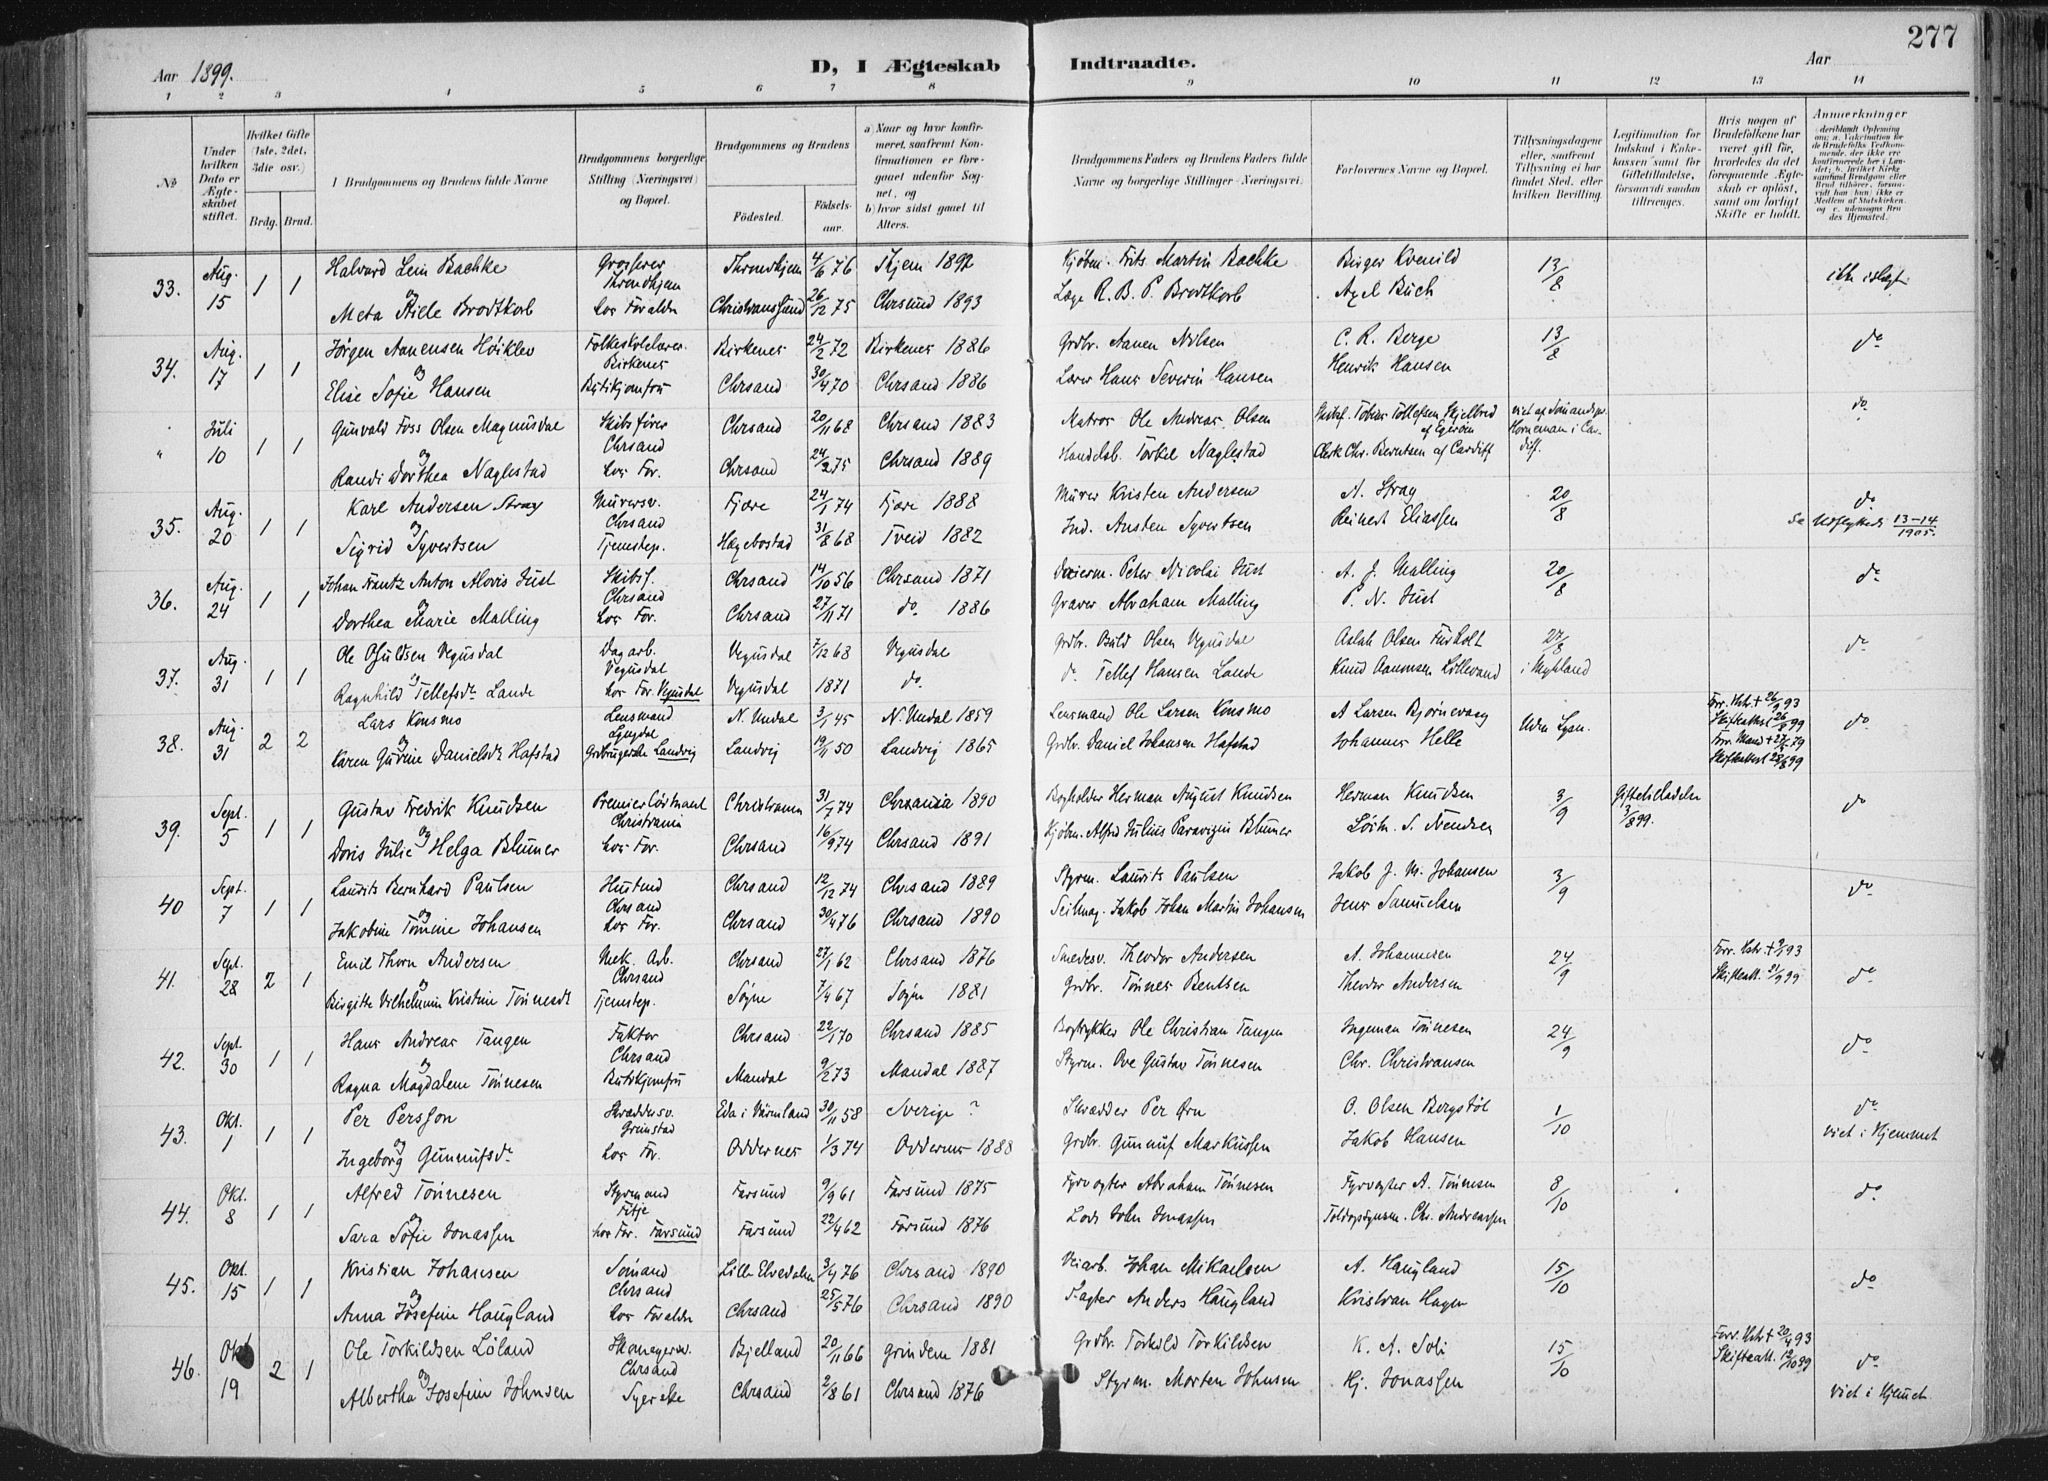 277
Aar 1899.
D, I Ægteskab Indtraadte.
Aar
1 2 3 4 5 6 7 8 9 10 11 12 13 14
No
Under hvilken Dato er Ægteskabet stiftet.
Hvilket Gifte (1ste, 2det, 3die osv.)
Brdg. Brud.
Brudgommens og Brudens fulde Navne
Brudgommens borgerlige Stilling (Næringsvei) og Bopæl.
Brudgommens og Brudens
Fødested. Fødselsaar.
a) Naar og hvor konfirmeret, saafremt Konfirmationen er foregaaet udenfor Sognet, og
b) hvor sidst gaaet til Alters.
Brudgommens Faders og Brudens Faders fulde Navne og borgerlige Stillinger (Næringsvei).
Forlovernes Navne og Bopæl.
Tillysningsdagene eller, saafremt Tillysning ei har fundet Sted, efter hvilken Bevilling.
Legitimation for Indskud i Enkekassen samt for Giftetilladelse, forsaavidt saadan tiltrænges.
Hvis nogen af Brudefolkene har været gift før, hvorledes da det foregaaende Ægteskab er opløst, samt om lovligt Skifte er holdt.
Anmerkninger
33. Aug. 15 1 1 Halvard Lein Bachke Grosserer Throndhjem Throndhjem 4/6 76 Thjem 1892 Kjøbm. Frits Martin Bachke Birger Kvenild 13/8
og
Meta Bodtkorb hos Forældr Christianssund 26/12 75 Chrsund 1893 Læge R. B. P. Brodtkorb Axel Buch
34. Aug. 17 1 1 Jørgen Aanensen Høiklev Folkeskolelærer Birkenes Birkenes 24/2 72 Birkenes 1886 Grdbr. Aanen Nilsen C. R. Berge 13/8 do
og
Elise Sofie Hansen Butikjomfru Chrsand 30/4 70 Chrsand 1886 Lærer Hans Severin Hansen Henrik Hansen
" Juli 10 1 1 Gunvald Foss Olsen Magnusdal Skibsfører Chrsand Chrsand 20/11 68 Chrsand 1883 Matros Ole Andreas Olsen Skibsf. Tobias Tollefsen Skjelbred af Egerøen viet af Sømandspr. Horneman i Cardiff. do
og
Randi Dorthea Naglestad hos For. Chrsand 24/2 75 Chrsand 1889 Handelsb. Torkel Naglestad Clerk Chr. Berntsen af Cardiff
35. Aug. 20 1 1 Karl Andersen Stray Murersv. Chrsand Fjære 24/1 74 Fjære 1888 Murer Kristen Andersen A. Stray 20/8 do
og
Sigrid Syvertsen Tjenestep. Hægebostad 31/8 68 Tveid 1882 Ind. Austen Syvertsen Reinert Eliassen Se Udflyttede 13-14/1905.
36. Aug. 24 1 1 Johan Frantz Anton Alovis Just Skibsf. Chrsand Chrsand 14/10 56 Chrsand 1871 Peter Nicolai Just A. J. Malling 20/8 do
og
Dorthea Marie Malling hos For. Chrsand 27/11 71 do 1886 Graver Abraham Malling P. N. Just
37. Aug. 31 1 1 Ole Vegusdal Dagarb. Vegusdal Vegusdal 7/12 68 Vegusdal Grdbr. Olsen Vegusdal Aslak Olsen Furholt 27/8 do
og
Ragnhild Tellefsdr Lande hos For. Vegusdal Vegusdal 1871 do. do. Tellef Hansen Lande Knud Aanonsen Lillevand i Mykland
38. Aug. 31 2 2 Lars Konsmo Lensmand Lyngdal N. Undal 3/1 45 N. Undal 1859 Lensmand Ole Larsen Konsmo A Larsen Bjørnevaag Uden Lysn. Forr. Hstr. + 26/9 93 do
og
Karen Gurine Danielsdr Hafstad Grdbrugerske Landvig Landvig 19/11 50 Landvig 1865 Grdbr. Daniel Johansen Hafstad Johannes Helle Forr. Mand
39. Sept. 5 1 1 Gustav Fredrik Knudsen Premierløitnant Christiania Christiania 31/7 74 Chrsania 1890 Bogholder Herman August Knudsen Herman Knudsen 3/9 Giftetilladelse 3/8 99. do
og
Doris Julie Helga Blumer hos For. Chrsand 16/9 74 Chrsand 1891 Kjøbm. Alfred Julius Paravizin Blumer Løitn. S. Svendsen
40 Sept. 7 1 1 Laurits Bernhard Paulsen Chrsand Chrsand 12/12 74 Chrsand 1889 Styrm. Laurits Paulsen Jakob J. M. Johansen 3/9 do
og
Jakobine Tomine Johansen hos For. Chrsand 30/4 76 Chrsand 1890 Seilmag. Jakob Johan Martin Johansen Jens Samuelsen
41. Sept. 28 2 1 Emil Thorn Andersen Mek. Arb. Chrsand Chrsand 27/1 62 Chrsand 1876 Smedesv. Theodor Andersen A. Johannesen 24/9 Forr. Hstr + 93 do
og
Birgitte Vilhelmine Kristine Tønnesdr Tjenestep. Søgne 7/4 67 Søgn 1881 Grdbr. Tønnes Bentsen Theodor Andersen Skifteatt. 21/9 99
42. Sept. 30 1 1 Hans Andreas Tangen Faktor Chrsand Chrsand 22/1 70 Chrsand 1885 Bogtrykker Ole Christian Tangen Ingeman Tønnesen 24/9 do
og
Ragna Magdalene Tønnesen Butikjomfru Mandal 9/2 73 Mandal 1887 Styrm. Ove Gustav Tønnesen Chr. Christiansen
43. Okt. 1 1 1 Per Persson Skræddersv. Grimstad Eda i Värmland 30/11 58 Sverige ? Skrædder Per Ørn O. Olsen Bergstøl 1/10 do
og
Ingeborg Gunnufsdr hos For. Oddernes 1/3 74 Oddernes 1888 Grdbr. Gunnuf Markussen Jakob Hansen viet i Hjemmet
44. Okt. 8 1 1 Alfred Tønnesen Styrmand Fitje Farsund 9/9 61 Farsund 1875 Fyrvogter Abraham Tønnesen Fyrvogter A. Tønnesen 8/10 do
og
Sara Sofie Jonassen hos For. Farsund Farsund 22/4 62 Farsund 1876 Lods John Jonassen Toldopsynsm. Chr. Andreassen
45. Okt. 15 1 1 Kristian Johansen Sømand Chrsand Lille Elvedalen 3/4 76 Chrsand 1890 Veiarb. Johan Mikaelsen A. Haugland 15/10 do
og
Anna Josefine Haugland hos Forældr Chrsand 25/5 76 Chrsand 1890 Fagter Anders Haugland Kristian Hagen
46. Okt 19 2 1 Ole Torkildsen Løland Skomagersv. Chrsand Bjelland 20/11 66 Grindem 1881 Grdbr. Torkild Torkildsen K. A. Soli 15/10 Forr. Hstr + 20/4 93 do
og
Albertha Josefine Johnsen Syerske Chrsand 2/8 61 Chrsand 1876 Styrm. Morten Johnsen Hj. Jonassen Skifteatt. 12/10 99 viet i Hjemmet